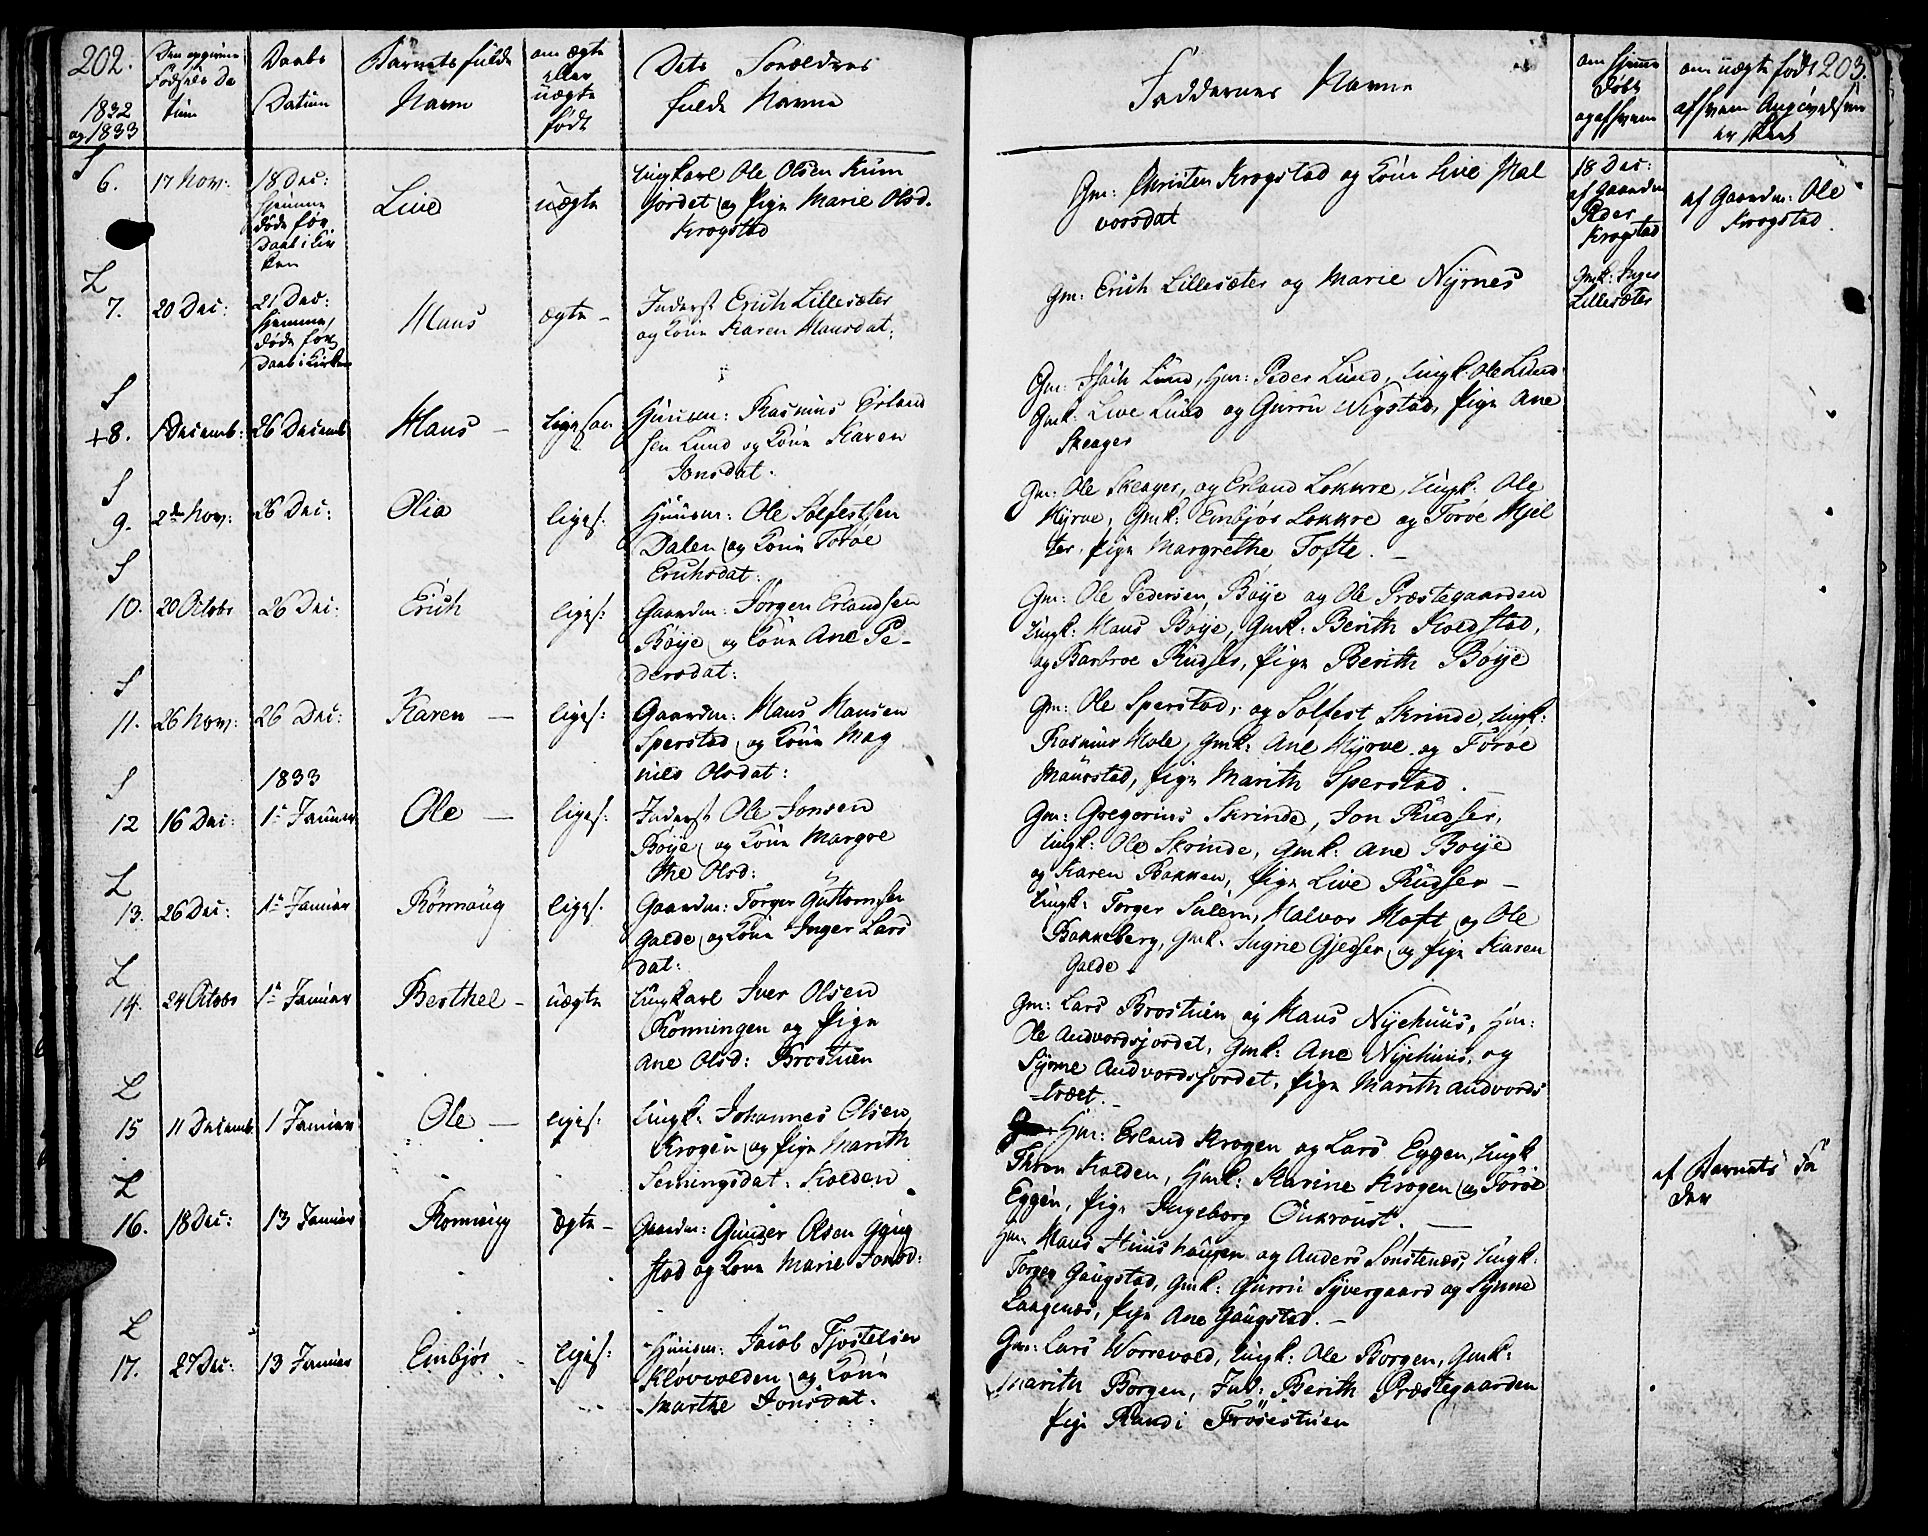 202.
1832
og 1833
Den opgivne
Fødsels Da
tum
Daabs
Datum
Barnets fulde
Navn
om ægte
eller
uægte
født
Dets Forældres
fulde Navne
Faddernes Navne
om hjemme
døbt
og af hvem
om uægte født 203.
af hvem Angivelsen
er skeet
S
6. 17 Nov: 18 Dec:
hjemme
døde før
Daab i Kir
ken
Live
uægte
Ungkarl Ole Olsen Kum
jordet og Pige Marie Olsd.
Krogstad
Gm: Christen Krogstad og Kone Live Hal
vorsdat
18 Dec:
af Gaardm
Peder
Krogstad
af Gaardm: Ole
Krogstad.
L
7. 20 Dec: 21 Dec:
hjemme,
døde før
Daab i Kirken
Hans
ægte –
Inderst Erich Lillesæter
og Kone Karen Hansdat:
Gm: Erich Lillesæter og Marie Nyrnes
Gmk: Inger
Lillesæter
S
+8. 1 Decemb: 26 Decemb
Hans –
ligesaa
Huusm: Rasmus Erland
sen Lund og Kone Karen
Jonsdat.
Gm: Isach Lund, Hm: Peder Lund, Ungk: Ole Lund
Gmk: Live Lund og Gurru Wigstad, Pige Ane
Skeager
S
9. 2den Nov: 26 Dec:
Olia
liges:
Huusm: Ole Solfestsen
Dalen og Kone Toroe
Erichsdat:
Gm: Ole Skeager, og Erland Lokkre, Ungk: Ole
Hyrve, Gmk: Embjør Lokkre og Toroe Hjel
ter, Pige Margrethe Tofte. –
S
10. 20 Octobr 26 Dec:
Erich
liges:
Gaardm: Jørgen Erlandsen
Bøye og Kone Ane Pe-
dersdat:
Gm: Ole Pedersen Bøye og Ole Præstegaarden
Ungk: Hans Bøye, Gmk: Berith Koldstad,
og Barbroe Rudser, Pige Berith Bøye
S
11. 26 Nov: 26 Dec:
Karen –
liges:
Gaardm: Hans Hansen
Sperstad og Kone Mag
nild Olsdat:
Gm: Ole Sperstad, og Solfest Skrinde, Ungk:
Rasmus Hole, Gmk: Ane Hyrve og Toroe
Maurstad, Pige Marith Sperstad. –
S
1833
12 16 Dec: 1ste Januar
Ole –
liges:
Inderst Ole Jonsen
Bøye og Kone Margre
the Olsd:
Gm: Gregorius Skrinde, Jon Rudser,
Ungk: Ole Skrinde, Gmk: Ane Bøye
og Karen Bakken, Pige Live Rudser –
L
13. 26 Dec: 1ste Januar
Rønnaug
liges:
Gaardm: Torger Guttormsen
Galde og Kone Inger Lars
dat:
Ungk: Torger Sulem, Halvor Hoft og Ole
Bakkeberg, Gmk: Sugrie Gjedser og Pige Karen
Galde
L
14. 24 Octobr 1ste Januar
Berthel –
uægte
Ungkarl Iver Olsen
Rønningen og Pige
Ane Olsd: Brostuen
Gm: Lars Brostuen og Hans Nyehuus, Hm:
Ole Andvordsjordet, Gmk: Ane Nyehuus, og
Synne Andvordsjordet, Pige Marith Andvords
træet. –
L
15 11 Decemb 1 Januar
Ole –
liges:
Ungk: Johannes Olsen
Krogen og Pige Marith
Semingsdat: Kolden
Hm: Erland Krogen og Lars Eggen, Ungk
Thron Kolden, Hmk: Karine Krogen og Toroe
Eggen, Pige Ingeborg Önkroust. –
af Barnets Fa
der
L
16. 18 Dec: 13 Januar
Ronnug
ægte –
Gaardm: Gunder Olsen Gaug
stad og Kone Marie Jonsd:
Gm Hans Huushaugen og Anders Sonstenæs, Ungk:
Torger Gaugstad, Gmk: Gurru Syvergaard og Synne
Laagenæs, Pige Ane Gaugstad. –
L
17. 27 Dec: 13 Januar
Embjør
liges:
Huusm: Jacob Tjostelsen
Kløvvolden og Kone
Marthe Jonsdat.
Gm: Lars Worrevold, Ungk: Ole Borgen, Gmk:
Marith Borgen, Ind: Berith Præstegaarden
Pige Randi Frøisestuen